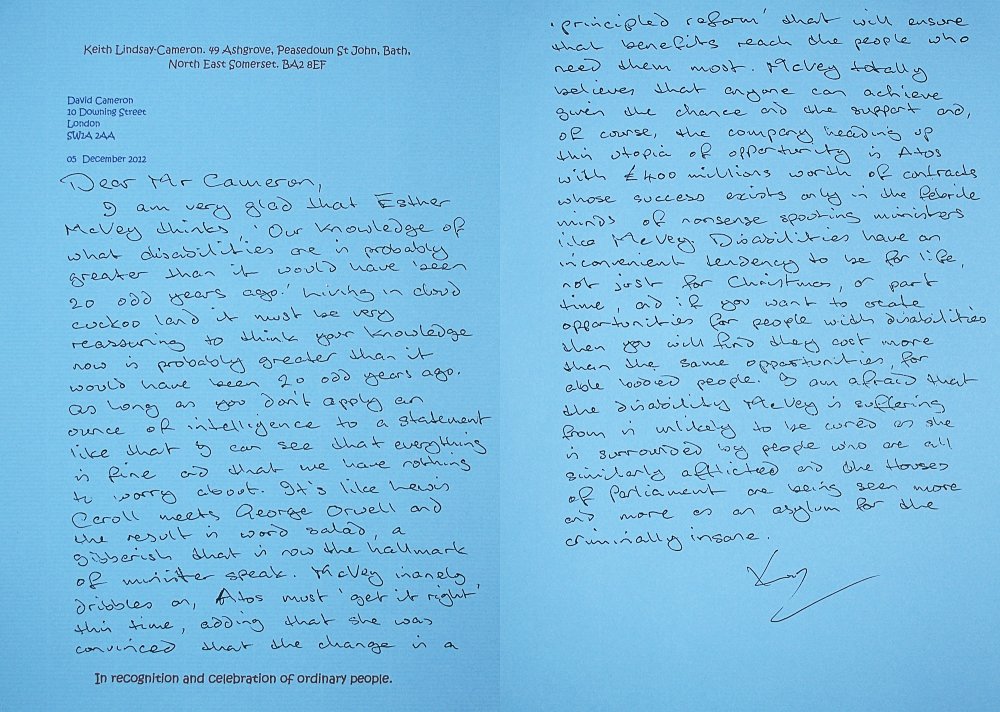 Keith Lindsay-Cameron. 49 Ashgrove, Peasedown St John, Bath,
North East Somerset. BA2 8EF
David Cameron
10 Downing Street
London
SW1A 2AA
05 December 2012
Dear Mr Cameron,
I am very glad that Esther
McVey thinks, 'Our knowledge of
what disabilities are is probably
greater than it would have been
20 odd years ago.' Living in cloud
cuckoo land it must be very
reassuring to think your knowledge
now is probably greater than it
would have been 20 odd years ago.
As long as you don't apply an
ounce of intelligence to a statement
like that I can see that everything
is fine and that we have nothing
to worry about. It's like Lewis
Caroll meets George Orwell and
the result is word salad, a
gibberish that is now the hallmark
of minister speak. McVey inanely
dribbles on, Atos must 'get it right'
this time, adding that she was
convinced that the change is a
'principled reform' that will ensure
that benefits reach the people who
need them most. McVey totally
believes that anyone can achieve
given the chance and the support and,
of course, the company heading up
this utopia of opportunity is Atos
with £400 millions worth of contracts
whose success exists only in the febrile
minds of nonsense spouting ministers
like McVey. Disabilities have an
inconvenient tendency to be for life,
not just for Christmas, or part
time, and if you want to create
opportunities for people with disabilities
then you will find they cost more
than the same opportunities for
able bodied people. I am afraid that
the disability McVey is suffering
from is unlikely to be cured as she
is surrounded by people who are all
similarly afflicted and the Houses
of Parliament are being seen more
and more as an asylum for the
criminally insane.
In recognition and celebration of ordinary people.